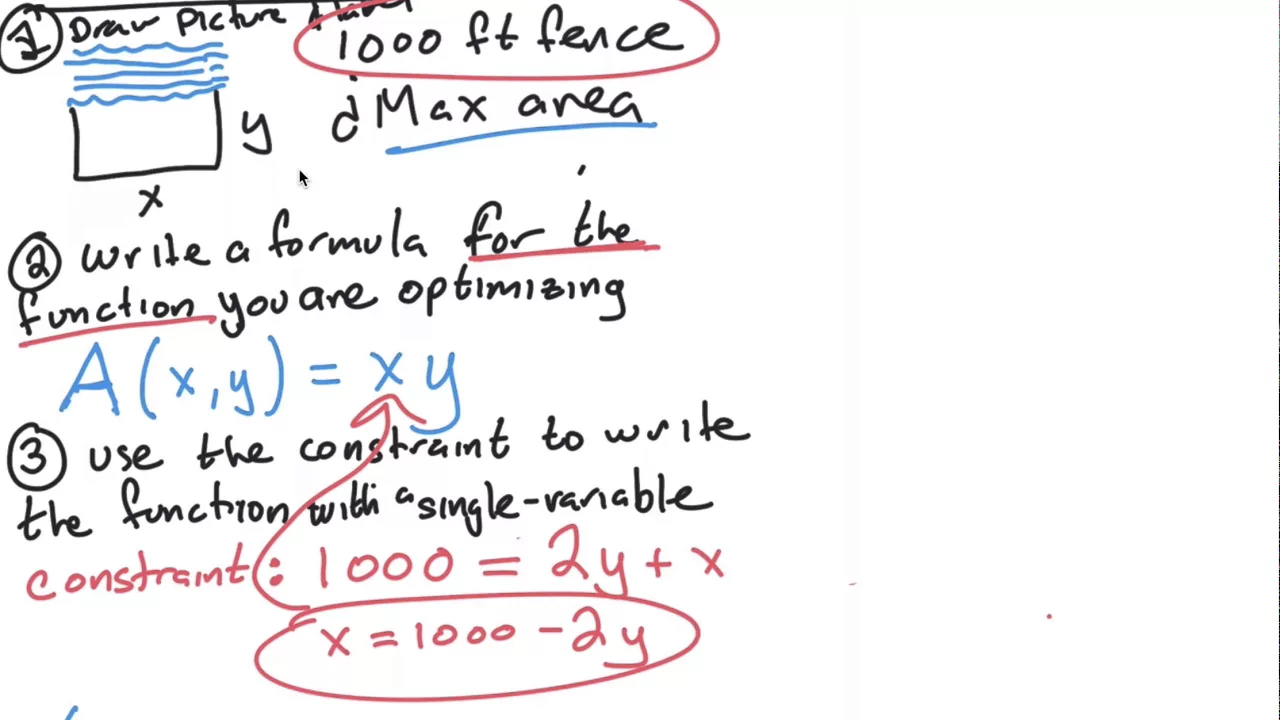 ① Draw Picture
1000 ft fence
y
Max area
x
② write a formula for the
function you are optimizing
A(x,y) = xy
③ use the constraint to write
the function with a single-variable
constraint: 1000 = 2y + x
x = 1000 - 2y